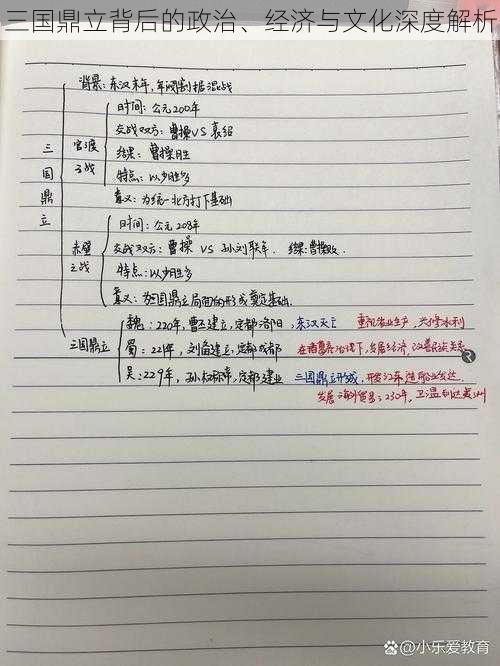 三国鼎立背后的政治、经济与文化深度解析
背景：东汉末年，军阀割据混战
时间：公元200年
官渡之战
交战双方：曹操VS袁绍
三国鼎立
结果：曹操胜
特点：以少胜多
意义：为统一北方打下基础
时间：公元208年
赤壁之战
交战双方：曹操 VS 孙刘联军． 结果：曹操败．
特点：以少胜多
意义：为三国鼎立局面的形成奠定基础．
三国鼎立
魏：220年，曹丕建立，定都洛阳，东汉灭亡 重视农业生产，兴修水利
蜀：221年，刘备建立，定都成都 在诸葛亮治理下，发展经济，改善民族关系
吴：229年，孙权称帝，定都建业 三国鼎立形成，开发江东，造船业发达．
发展海外贸易：230年，卫温到达夷洲
@小乐爱教育